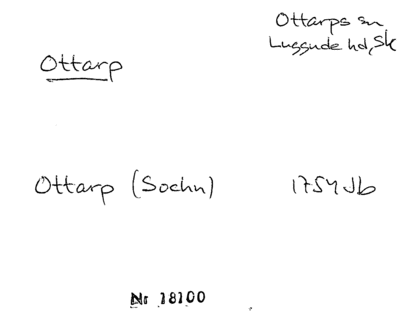 Ottarps sn
Luggude hd, Sk
Ottarp
Ottarp (Sochn) 1754 Jb
Nr 18100